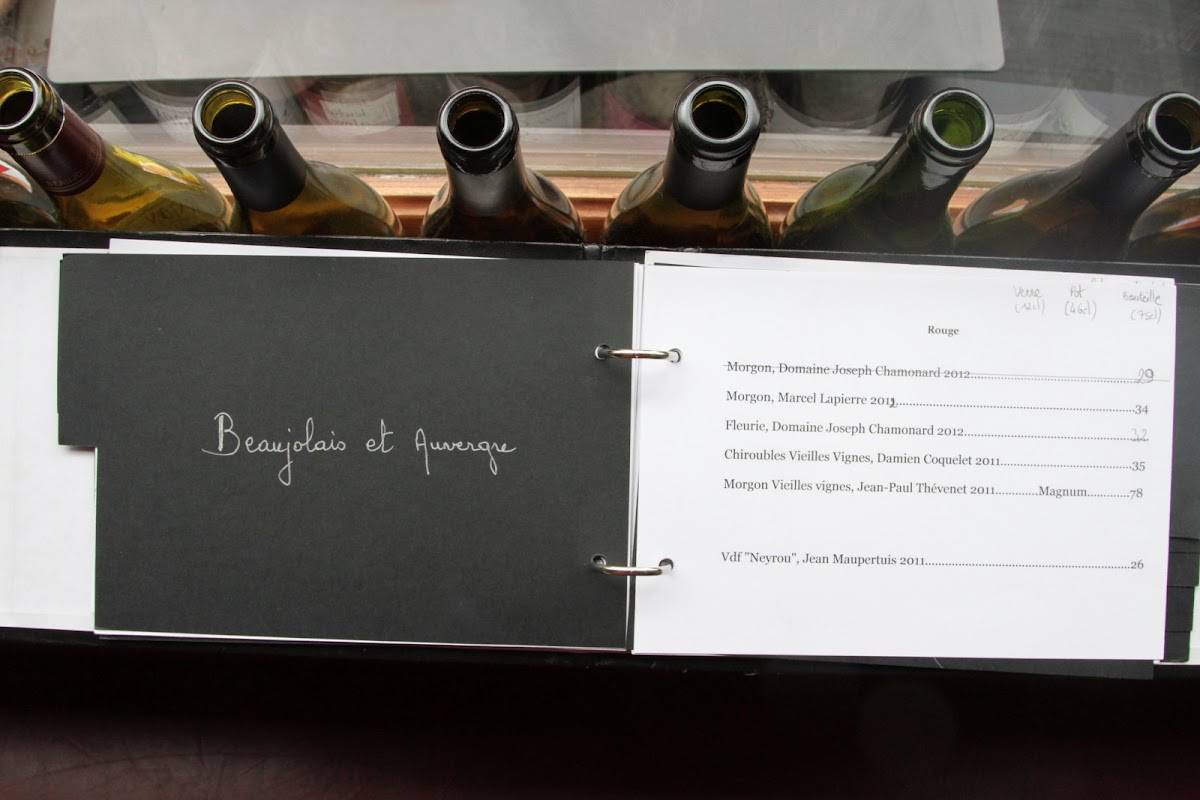 Beaujolais et Auvergne
Verre Pot Bouteille
(12cl) (46cl) (75cl)
Rouge
Morgon, Domaine Joseph Chamonard 2012..........29
Morgon, Marcel Lapierre 2012..........34
Fleurie, Domaine Joseph Chamonard 2012..........32
Chiroubles Vieilles Vignes, Damien Coquelet 2011..........35
Morgon Vieilles vignes, Jean-Paul Thévenet 2011.............Magnum.............78
Vdf "Neyrou", Jean Maupertuis 2011..........26